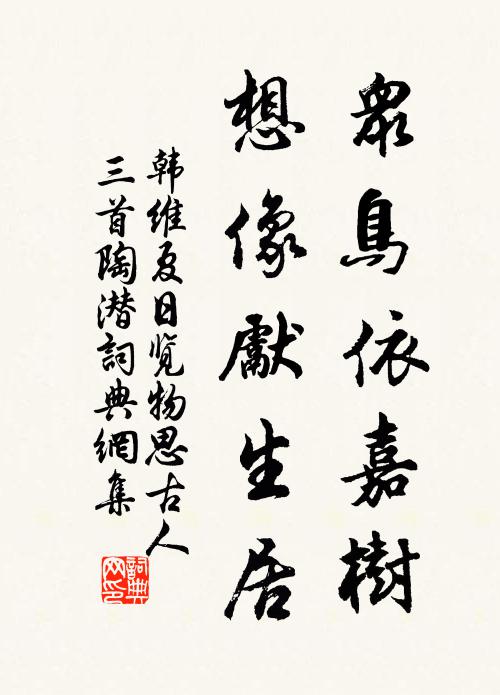 衆鳥依嘉樹
想像獻生居
韩维夏日览物思古人
三首陶潜詞典網集
詞典
网印